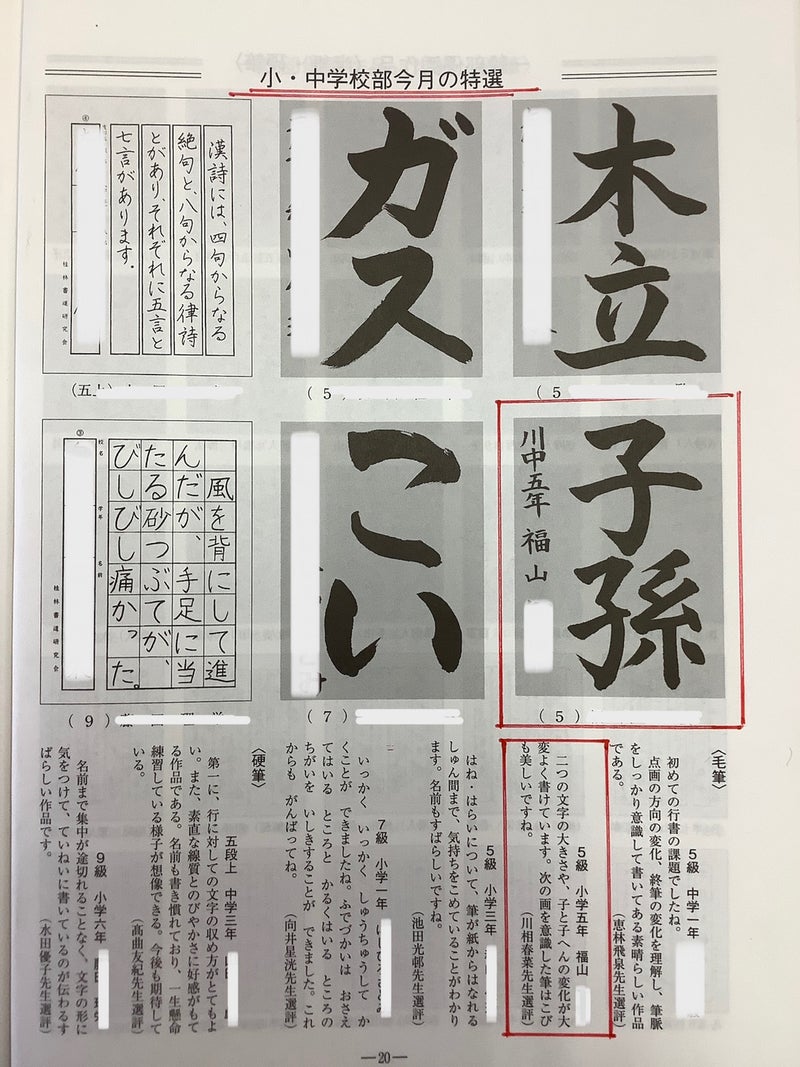 小・中学校部今月の特選
木立
(5
子孫
川中五年 福山
(5)
ガス
(5)
こい
(7)
④
漢詩には、四句からなる
絶句と、八句からなる律詩
とがあり、それぞれに五言と
七言があります。
桂林書道研究会
(五上
③
校名
学年
名前
風を背にして進
んだが、手足に当
たる砂つぶてが、
びしびし痛かった。
桂林書道研究会
(9)
〈毛筆〉
5級 中学一年
初めての行書の課題でしたね。
点画の方向の変化、終筆の変化を理解し、筆脈
をしっかり意識して書いてある素晴らしい作品
である。
(恵林飛泉先生選評)
5級 小学五年 福山
二つの文字の大きさや、子と子へんの変化が大
変よく書けています。次の画を意識した筆はこび
も美しいですね。
(川相春菜先生選評)
5級 小学三年
はね・はらいについて、筆が紙からはなれる
しゅん間まで、気持ちをこめていることがわかり
ます。名前もすばらしいですね。
(池田光邨先生選評)
7級 小学一年
いっかく いっかく しゅうちゅうして か
くことが できましたね。ふでづかいは おさえ
てはいる ところと かるくはいる ところの
ちがいを いしきすることが できました。これ
からも がんばってね。
(向井星洸先生選評)
〈硬筆〉
五段上 中学三年
第一に、行に対しての文字の収め方がとてもよ
い。また、素直な線質とのびやかさに好感がもて
る作品である。名前も書き慣れており、一生懸命
練習している様子が想像できる。今後も期待して
いる。
(髙曲友紀先生選評)
9級 小学六年
名前まで集中が途切れることなく、文字の形に
気をつけて、ていねいに書いているのが伝わるす
ばらしい作品です。
(水田優子先生選評)
—20—